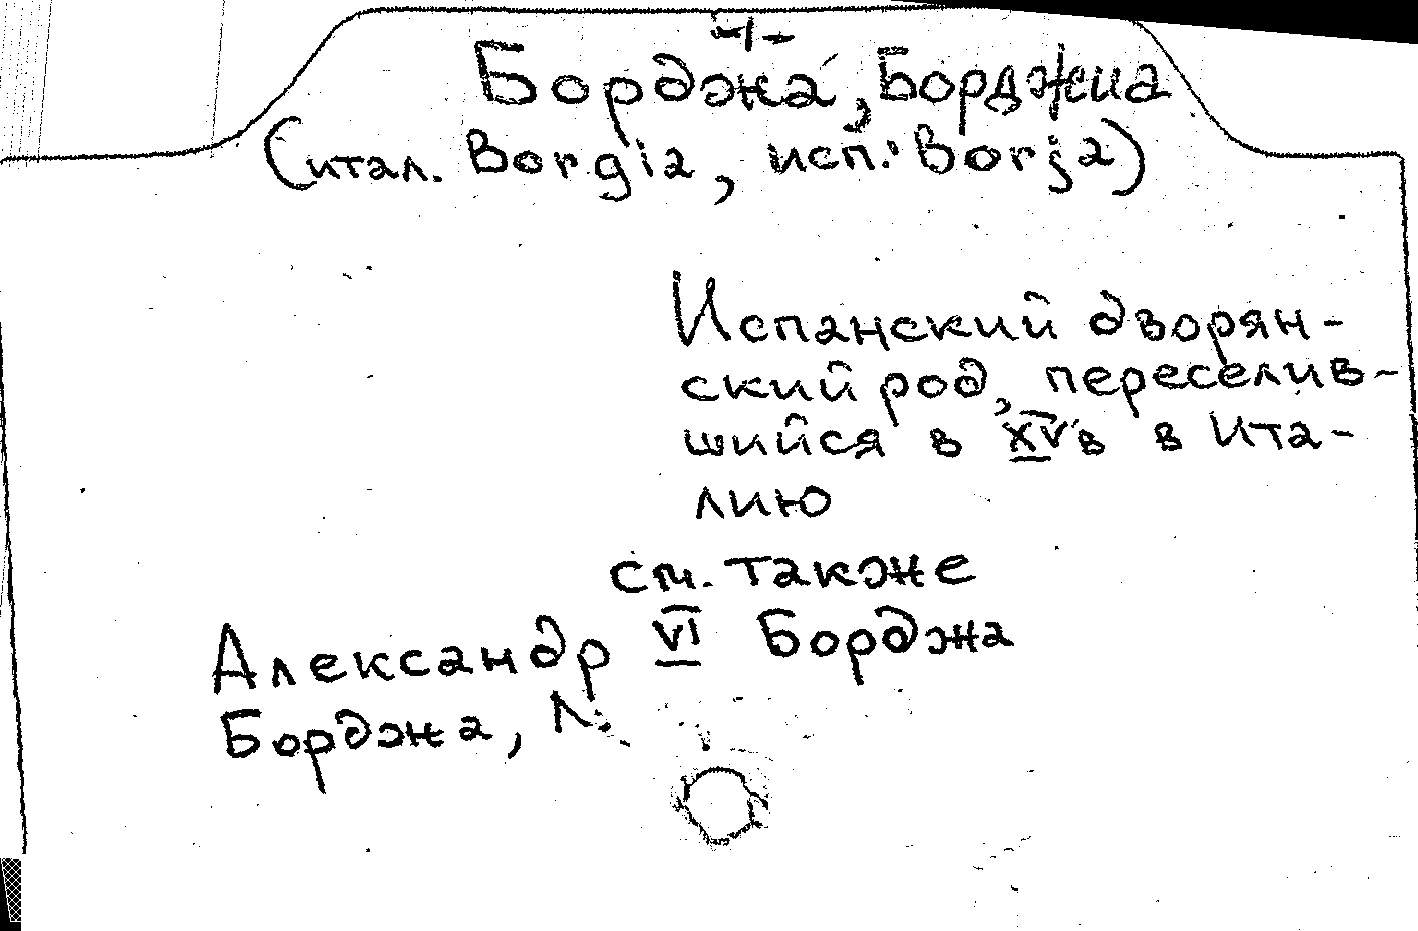 -4-
Борджа, Борджиа
(итал. Borgia, исп. Borja)
Испанский дворян-
ский род, переселив-
шийся в XV в в Ита-
лию
см. также
Александр VI Борджа
Борджа, Л.